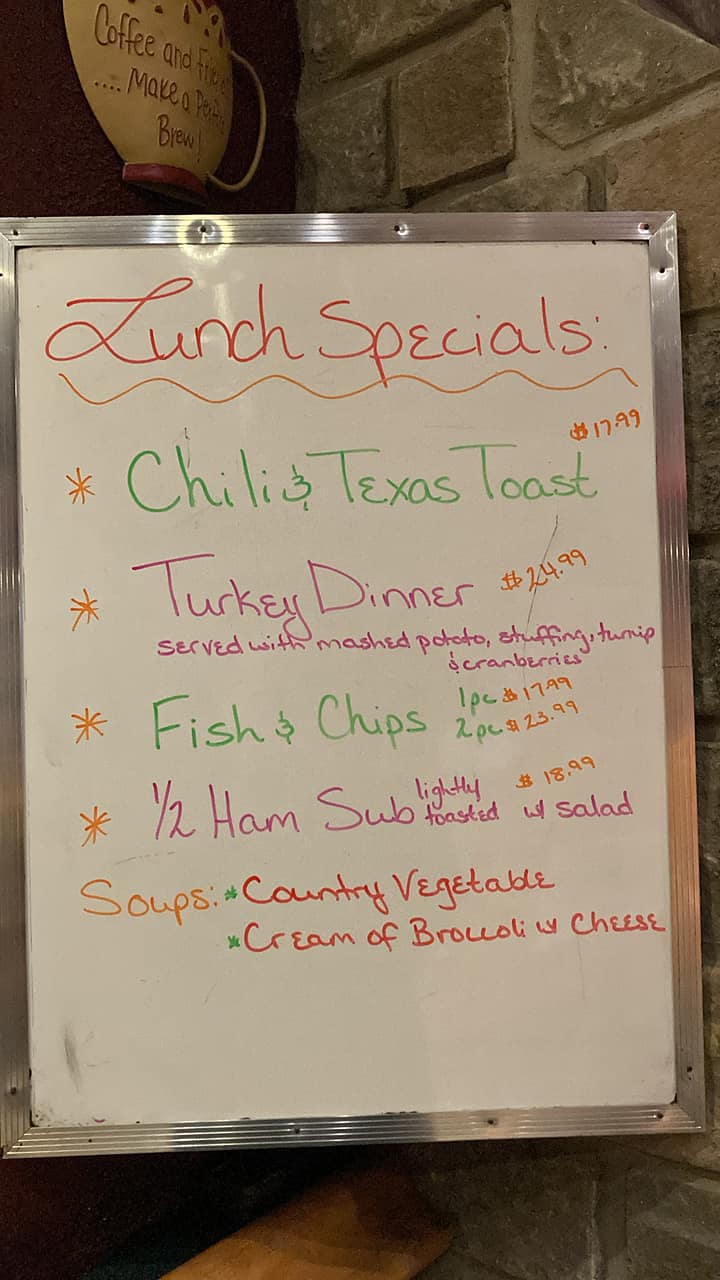 Coffee and
.... Make a
Brew!
Lunch Specials:
$17.99
* Chili & Texas Toast
* Turkey Dinner $24.99
served with mashed potato, stuffing, turnip
& cranberries
* Fish & Chips 1pc $17.99
2pc $23.99
* 1/2 Ham Sub lightly toasted $18.99 w/ salad
Soups: * Country Vegetable
* Cream of Broccoli w/ Cheese